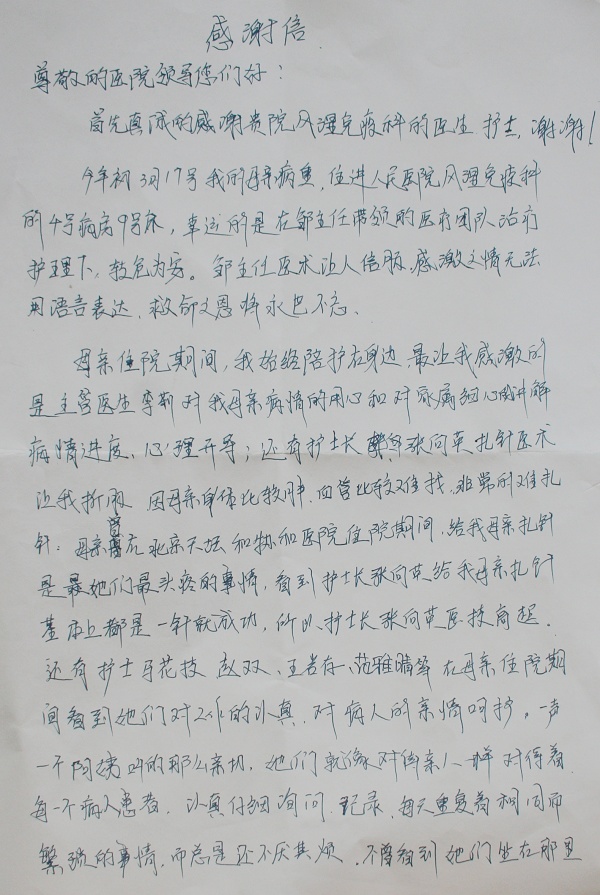 感谢信
尊敬的医院领导您们好：
首先真诚的感谢贵院风湿免疫科的医生 护士，谢谢！
今年初3月17号我的母亲病重，住进人民医院风湿免疫科
的4号病房9号床，幸运的是在邹主任带领的医疗团队治疗
护理下，转危为安。邹主任医术让人信服，感激之情无法
用语言表达，救命之恩将永世不忘。
母亲住院期间，我始终陪护在身边 最让我感激的
是主管医生李新对我母亲病情的用心和对家属细心的讲解
病情进度、心理开导；还有护士长张向英扎针医术
让我折服 因母亲身体比较胖，血管比较难找，非常的难扎
针；母亲曾在北京天坛和协和医院住院期间，给我母亲扎针
是最她们最头疼的事情，看到护士长张向英给我母亲扎针
基本上都是一针就成功，所以护士长张向英医技高超。
还有护士马花枝 赵双、王若存、范雅晴等在母亲住院期
间看到她们对工作的认真，对病人的亲情呵护，一声
一个阿姨叫的那么亲切，她们就像对待亲人一样对待着
每一个病人患者，认真仔细询问、记录，每天重复着相同而
繁琐的事情，而总是还不厌其烦，不曾看到她们坐在那里